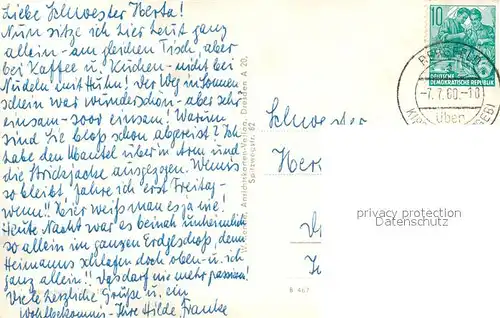 Liebe Schwester Herta!
Nun sitze ich hier heut ganz
allein - am gleichen Tisch, aber
bei Kaffee u. Kuchen - nicht bei
Nudeln mit Huhn! Der Weg im Sonnen
schein war wunderschön - aber sehr
einsam - soor einsam! Warum
sind Sie bloß schon abgereist? Ich
habe den Mantel über'n Arm und
die Strickjacke ausgezogen. Wenn's
so bleibt, fahre ich erst Freitag -
wenn!! Hier weiß man es ja nie!
Heute Nacht war es beinah unheimlich
so allein im ganzen Erdgeschoß, denn
Heimanns schlafen doch oben - u. ich
ganz allein!! Das darf nie mehr passieren!
Viele herzliche Grüße u. ein
Wohlbekomm's - Ihre Hilde Franke
Ansichtskarten-Verlag, Dresden A 20,
10
DEUTSCHE
DEMOKRATISCHE REPUBLIK
-7.7.60.-18
über
Schwester
Her
B 467
privacy protection
Datenschutz